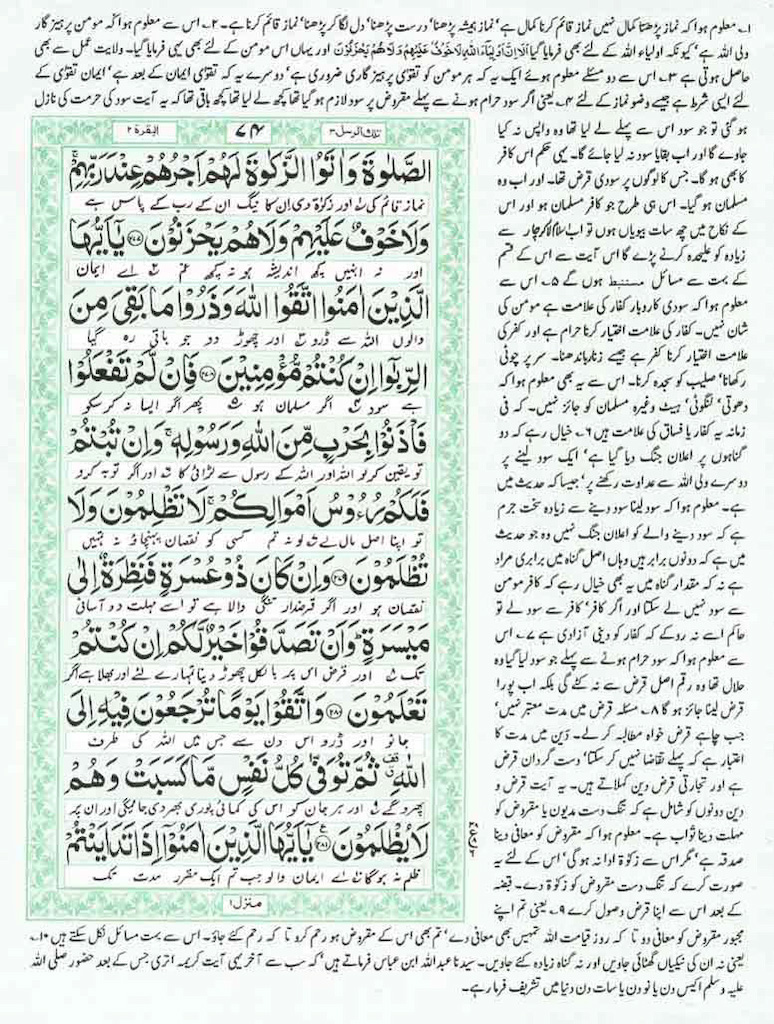 ۱۔ معلوم ہوا کہ نماز پڑھنا کمال نہیں نماز قائم کرنا کمال ہے‘ نماز ہمیشہ پڑھنا‘ درست پڑھنا‘ دل لگا کر پڑھنا‘ نماز قائم کرنا ہے۔ ۲۔ اس سے معلوم ہوا کہ مومن پرہیز گار
ولی اللہ ہے‘ کیونکہ اولیاء اللہ کے لئے بھی فرمایا گیا اَلَآ اِنَّ اَوْلِیَآءَ اللہِ لَا خَوْفٌ عَلَیْہِمْ وَلَا ہُمْ یَحْزَنُوْنَ اور یہاں اس مومن کے لئے بھی یہی فرمایا گیا۔ ولایت عمل سے بھی
حاصل ہوتی ہے ۳۔ اس سے دو مسئلے معلوم ہوئے ایک یہ کہ ہر مومن کو تقویٰ پرہیز گاری ضروری ہے‘ دوسرے یہ کہ تقویٰ ایمان کے بعد ہے‘ ایمان تقویٰ کے
لئے ایسی شرط ہے جیسے وضو نماز کے لئے ۴۔ یعنی اگر سود حرام ہونے سے پہلے مقروض پر سود لازم ہو گیا تھا کچھ لے لیا تھا کچھ باقی تھا کہ یہ آیت سود کی حرمت کی نازل
ہو گئی تو جو سود اس سے پہلے لے لیا تھا وہ واپس نہ کیا
جاوے گا اور اب بقایا سود نہ لیا جائے گا۔ یہی حکم اس کافر
کا بھی ہو گا۔ جس کا لوگوں پر سودی قرض تھا۔ اور اب وہ
مسلمان ہو گیا۔ اس ہی طرح جو کافر مسلمان ہو اور اس
کے نکاح میں چھ سات بیویاں ہوں تو اب اسلام لاکر چار سے
زیادہ کو علیحدہ کرنے پڑے گا اس آیت سے اس کے قسم
کے بہت سے مسائل مستنبط ہوں گے ۵۔ اس سے
معلوم ہوا کہ سودی کاروبار کفار کی علامت ہے مومن کی
شان نہیں۔ کفار کی علامت اختیار کرنا حرام ہے اور کفر کی
علامت اختیار کرنا کفر ہے جیسے زنار باندھنا۔ سر پر چوٹی
رکھانا‘ صلیب کو سجدہ کرنا۔ اس سے یہ بھی معلوم ہوا کہ
دھوتی‘ لنگوٹی‘ ہیٹ وغیرہ مسلمان کو جائز نہیں۔ کہ فی
زمانہ یہ کفار یا فساق کی علامت ہیں ۶۔ خیال رہے کہ دو
گناہوں پر اعلان جنگ دیا گیا ہے‘ ایک سود لینے پر
دوسرے ولی اللہ سے عداوت رکھنے پر‘ جیسا کہ حدیث میں
ہے۔ معلوم ہوا کہ سود لینا سود دینے سے زیادہ سخت جرم
ہے کہ سود دینے والے کو اعلان جنگ نہیں وہ جو حدیث
میں ہے کہ دونوں برابر ہیں وہاں اصل گناہ میں برابری مراد
ہے نہ کہ مقدار گناہ میں یہ بھی خیال رہے کہ کافر مومن
سے سود نہیں لے سکتا اور اگر کافر‘ کافر سے سود لے تو
حاکم اسے نہ روکے کہ کفار کو دینی آزادی ہے ۷۔ اس
سے معلوم ہوا کہ سود حرام ہونے سے پہلے جو سود لیا گیا وہ
حلال تھا وہ رقم اصل قرض سے نہ کٹے گی بلکہ اب پورا
قرض لینا جائز ہو گا ۸۔ مسئلہ قرض میں مدت معتبر نہیں‘
جب چاہے قرض خواہ مطالبہ کر لے۔ دَین میں مدت کا
اعتبار ہے کہ پہلے تقاضا نہیں کر سکتا‘ دست گردان قرض
ہے اور تجارتی قرض دین کہلاتے ہیں۔ یہ آیت قرض و
دین دونوں کو شامل ہے کہ تنگ دست مدیون یا مقروض کو
مہلت دینا ثواب ہے۔ معلوم ہوا کہ مقروض کو معافی دینا
صدقہ ہے‘ مگر اس سے زکوٰۃ ادا نہ ہو گی‘ اس کے لئے یہ
صورت کرے کہ تنگ دست مقروض کو زکوٰۃ دے۔ قبضہ
کے بعد اس سے اپنا قرض وصول کرے ۹۔ یعنی تم اپنے
مجبور مقروض کو معافی دو تا کہ روز قیامت اللہ تمہیں بھی معافی دے‘ تم بھی اس کے مقروض ہو رحم کرو تا کہ رحم کئے جاؤ۔ اس سے بہت مسائل نکل سکتے ہیں ۱۰۔
یعنی نہ ان کی نیکیاں گھٹائی جاویں اور نہ گناہ زیادہ کئے جاویں۔ سیدنا عبداللہ ابن عباس فرماتے ہیں‘ کہ سب سے آخر یہی آیت کریمہ اتری جس کے بعد حضور صلی اللہ
علیہ وسلم اکیس دن یا نو دن یا سات دن دنیا میں تشریف فرما رہے۔
تلك الرسل ۳
۷۴
البقرة ۲
الصَّلٰوةَ وَاٰتَوُا الزَّكٰوةَ لَهُمْ اَجْرُهُمْ عِنْدَ رَبِّهِمْ ۚ
نماز قائم کی اور زکوٰۃ دی ان کا نیگ ان کے رب کے پاس ہے
وَلَا خَوْفٌ عَلَيْهِمْ وَلَا هُمْ يَحْزَنُوْنَ ۲۷۷ يٰۤاَيُّهَا
اور نہ انہیں کچھ اندیشہ ہو نہ کچھ غم اے ایمان
الَّذِيْنَ اٰمَنُوا اتَّقُوا اللّٰهَ وَذَرُوْا مَا بَقِيَ مِنَ
والوں اللہ سے ڈرو اور چھوڑ دو جو باقی رہ گیا
الرِّبٰۤوا اِنْ كُنْتُمْ مُّؤْمِنِيْنَ ۲۷۸ فَاِنْ لَّمْ تَفْعَلُوْا
ہے سود اگر مسلمان ہو پھر اگر ایسا نہ کرسکو
فَاْذَنُوْا بِحَرْبٍ مِّنَ اللّٰهِ وَرَسُوْلِهٖ ۚ وَاِنْ تُبْتُمْ
تو یقین کرلو اللہ اور اللہ کے رسول سے لڑائی کا اور اگر توبہ کرو
فَلَكُمْ رُءُوْسُ اَمْوَالِكُمْ ۚ لَا تَظْلِمُوْنَ وَلَا
تو اپنا اصل مال لے لو نہ تم کسی کو نقصان پہنچاؤ نہ تمہیں
تُظْلَمُوْنَ ۲۷۹ وَاِنْ كَانَ ذُوْ عُسْرَةٍ فَنَظِرَةٌ اِلٰى
نقصان ہو اور اگر قرضدار تنگی والا ہے تو اسے مہلت دو آسانی
مَيْسَرَةٍ ؕ وَاَنْ تَصَدَّقُوْا خَيْرٌ لَّكُمْ اِنْ كُنْتُمْ
تک اور قرض اس پر بالکل چھوڑ دینا تمہارے لئے اور بھلا ہے اگر
تَعْلَمُوْنَ ۲۸۰ وَاتَّقُوْا يَوْمًا تُرْجَعُوْنَ فِيْهِ اِلَى
جانو اور ڈرو اس دن سے جس میں اللہ کی طرف
اللّٰهِ ۫ ثُمَّ تُوَفّٰى كُلُّ نَفْسٍ مَّا كَسَبَتْ وَهُمْ
پھرو گے اور ہر جان کو اس کی کمائی پوری بھر دی جائیگی اور ان پر
لَا يُظْلَمُوْنَ ۲۸۱ يٰۤاَيُّهَا الَّذِيْنَ اٰمَنُوْۤا اِذَا تَدَايَنْتُمْ
ظلم نہ ہوگا اے ایمان والو جب تم ایک مقرر مدت تک
منزل ۱